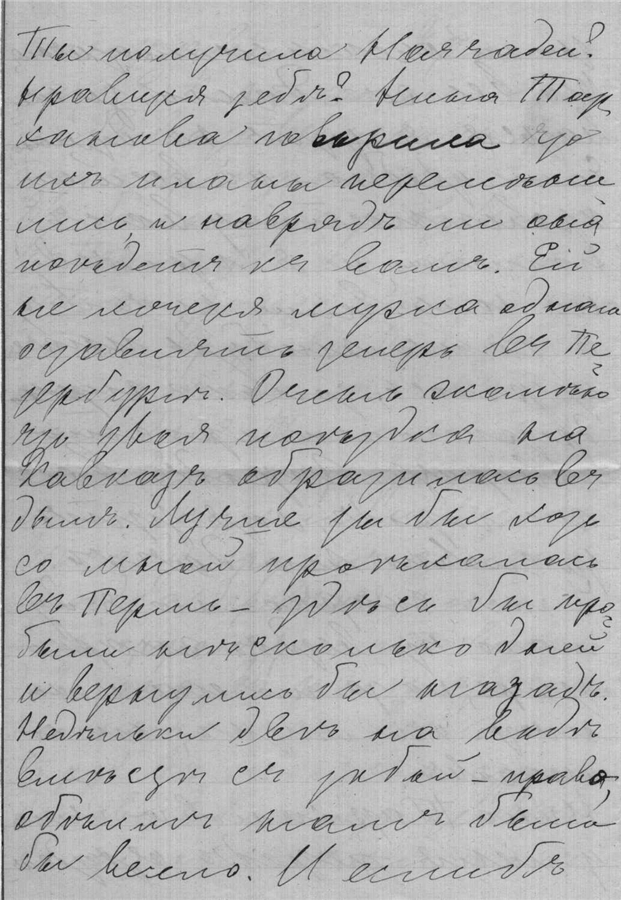 Ты получила Нагчадеи?
Нравится тебѣ? Нина Тар
ханова говорила что
ихъ планы перемѣни
лись, и наврядъ ли она
поѣдетъ къ вамъ. Ей
не хочется мужа одного
оставлять теперь въ Пе
тербургѣ. Очень жалѣю
что твоя поѣздка на
Кавказъ обратилась въ
дымъ. Лучше ты бы хоть
со мной проѣхалась
въ Пермь – здѣсь бы про
были нѣсколько дней
и вернулись бы назадъ.
Недѣльки двѣ на водѣ
вмѣстѣ съ тобой – право,
обѣимъ намъ было
бы весело. И еслибъ